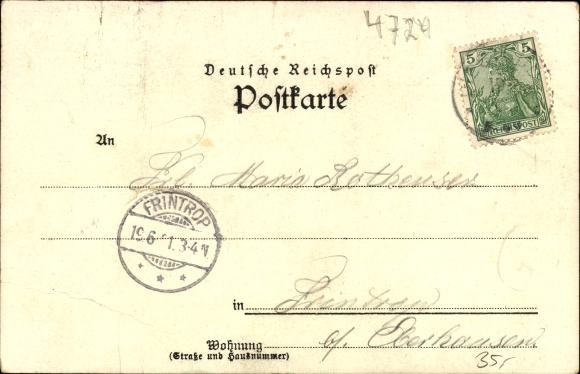 4729
5 5
REICHSPOST
Deutsche Reichspost
Postkarte
An
Frl. Maria Rothenser
FRINTROP
19.6 01. 3-4 N
in Frintrop
b/ Oberhausen
Wohnung
(Straße und Hausnummer)
35,-